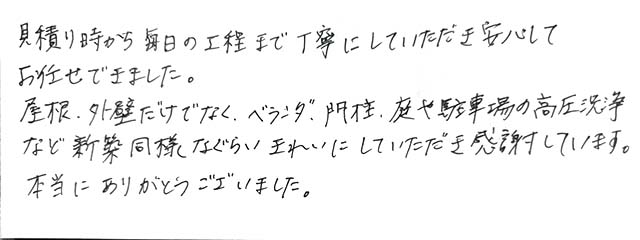 見積り時から毎日の工程まで丁寧にしていただき安心して
お任せできました。
屋根、外壁だけでなく、ベランダ、門柱、庭や駐車場の高圧洗浄
など新築同様なぐらいきれいにしていただき感謝しています。
本当にありがとうございました。